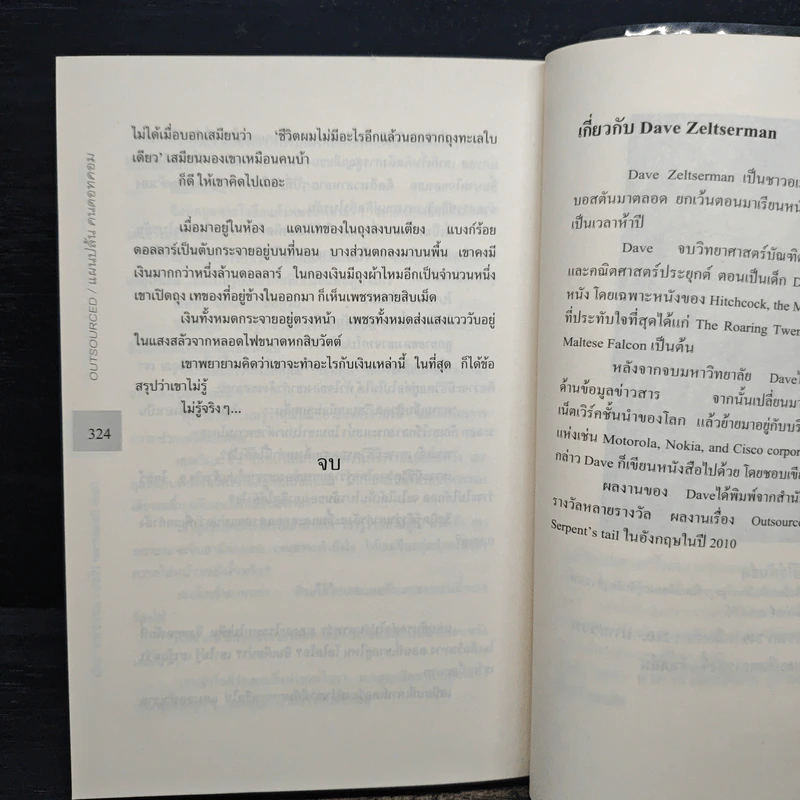 ไม่ได้เมื่อบอกเสมียนว่า 'ชีวิตผมไม่มีอะไรอีกแล้วนอกจากถุงทะเลใบ
เดียว' เสมียนมองเขาเหมือนคนบ้า
ก็ดี ให้เขาคิดไปเถอะ
เมื่อมาอยู่ในห้อง แดนเทของในถุงลงบนเตียง แบงก์ร้อย
ดอลลาร์เป็นตับกระจายอยู่บนที่นอน บางส่วนตกลงมาบนพื้น เขาคงมี
เงินมากกว่าหนึ่งล้านดอลลาร์ ในกองเงินมีถุงผ้าไหมอีกเป็นจำนวนหนึ่ง
เขาเปิดถุง เทของที่อยู่ข้างในออกมา ก็เห็นเพชรหลายสิบเม็ด
เงินทั้งหมดกระจายอยู่ตรงหน้า เพชรทั้งหมดส่งแสงแวววับอยู่
ในแสงสลัวจากหลอดไฟขนาดหกสิบวัตต์
เขาพยายามคิดว่าเขาจะทำอะไรกับเงินเหล่านี้ ในที่สุด ก็ได้ข้อ
สรุปว่าเขาไม่รู้
ไม่รู้จริงๆ...
จบ
OUTSOURCED / แผนปล้น คนดอทคอม
324
เกี่ยวกับ Dave Zeltserman
Dave Zeltserman เป็นชาวอเม
บอสตันมาตลอด ยกเว้นตอนมาเรียนหนั
เป็นเวลาห้าปี
Dave จบวิทยาศาสตร์บัณฑิต
และคณิตศาสตร์ประยุกต์ ตอนเป็นเด็ก D
หนัง โดยเฉพาะหนังของ Hitchcock, the M
ที่ประทับใจที่สุดได้แก่ The Roaring Twen
Maltese Falcon เป็นต้น
หลังจากจบมหาวิทยาลัย Daveไ
ด้านข้อมูลข่าวสาร จากนั้นเปลี่ยนมา
เน็ตเวิร์คชั้นนำของโลก แล้วย้ายมาอยู่กับบริ
แห่งเช่น Motorola, Nokia, and Cisco corpor
กล่าว Dave ก็เขียนหนังสือไปด้วย โดยชอบเขีย
ผลงานของ Daveได้พิมพ์จากสำนั
รางวัลหลายรางวัล ผลงานเรื่อง Outsource
Serpent's tail ในอังกฤษในปี 2010